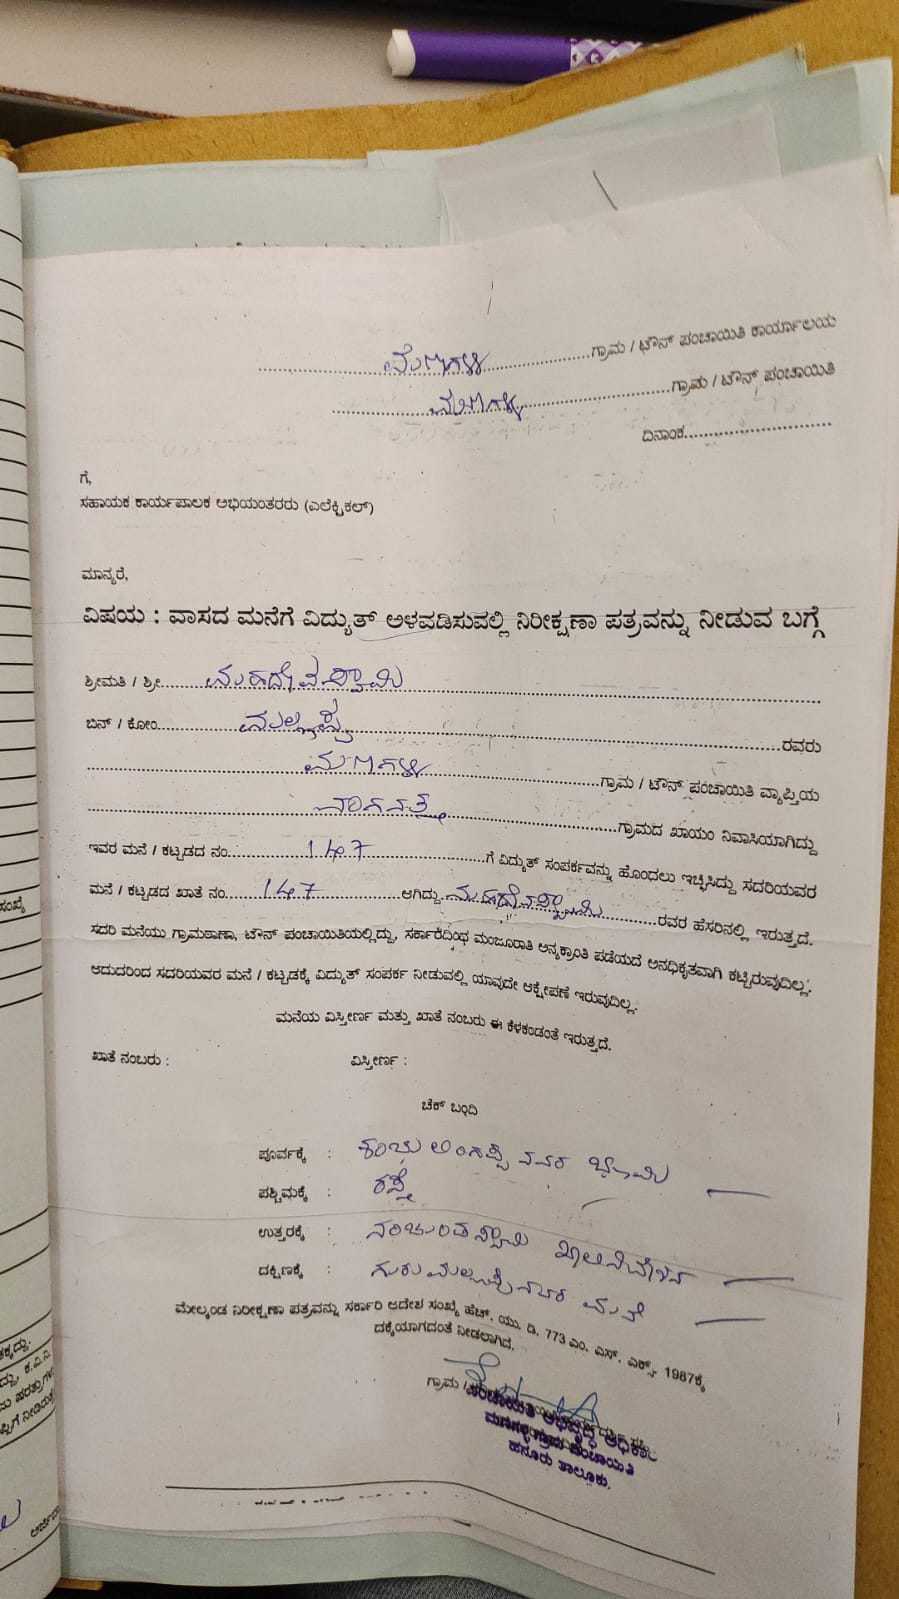 ಮಣಗಳ್ಳಿ ಗ್ರಾಮ / ಟೌನ್ ಪಂಚಾಯಿತಿ ಕಾರ್ಯಾಲಯ
ಮಣಗಳ್ಳಿ ಗ್ರಾಮ / ಟೌನ್ ಪಂಚಾಯಿತಿ
ದಿನಾಂಕ
ಗೆ,
ಸಹಾಯಕ ಕಾರ್ಯಪಾಲಕ ಅಭಿಯಂತರರು (ಎಲೆಕ್ಟ್ರಿಕಲ್)
ಮಾನ್ಯರೆ,
ವಿಷಯ : ವಾಸದ ಮನೆಗೆ ವಿದ್ಯುತ್ ಅಳವಡಿಸುವಲ್ಲಿ ನಿರೀಕ್ಷಣಾ ಪತ್ರವನ್ನು ನೀಡುವ ಬಗ್ಗೆ
ಶ್ರೀಮತಿ / ಶ್ರೀ ಮಹದೇವಸ್ವಾಮಿ
ಬಿನ್ / ಕೋಂ ಮಲ್ಲಪ್ಪ ರವರು
ಮಣಗಳ್ಳಿ ಗ್ರಾಮ / ಟೌನ್ ಪಂಚಾಯಿತಿ ವ್ಯಾಪ್ತಿಯ
ಗ್ರಾಮದ ಖಾಯಂ ನಿವಾಸಿಯಾಗಿದ್ದು
ಇವರ ಮನೆ / ಕಟ್ಟಡದ ನಂ. 147 ಗೆ ವಿದ್ಯುತ್ ಸಂಪರ್ಕವನ್ನು ಹೊಂದಲು ಇಚ್ಛಿಸಿದ್ದು ಸದರಿಯವರ
ಮನೆ / ಕಟ್ಟಡದ ಖಾತೆ ನಂ. 147 ಆಗಿದ್ದು ಮಹದೇವಸ್ವಾಮಿ ರವರ ಹೆಸರಿನಲ್ಲಿ ಇರುತ್ತದೆ.
ಸದರಿ ಮನೆಯು ಗ್ರಾಮಠಾಣಾ, ಟೌನ್ ಪಂಚಾಯಿತಿಯಲ್ಲಿದ್ದು, ಸರ್ಕಾರದಿಂಥ ಮಂಜೂರಾತಿ ಅನ್ಯಕ್ರಾಂತಿ ಪಡೆಯದೆ ಅನಧಿಕೃತವಾಗಿ ಕಟ್ಟಿರುವುದಿಲ್ಲ.
ಆದುದರಿಂದ ಸದರಿಯವರ ಮನೆ / ಕಟ್ಟಡಕ್ಕೆ ವಿದ್ಯುತ್ ಸಂಪರ್ಕ ನೀಡುವಲ್ಲಿ ಯಾವುದೇ ಆಕ್ಷೇಪಣೆ ಇರುವುದಿಲ್ಲ.
ಮನೆಯ ವಿಸ್ತೀರ್ಣ ಮತ್ತು ಖಾತೆ ನಂಬರು ಈ ಕೆಳಕಂಡಂತೆ ಇರುತ್ತದೆ.
ಖಾತೆ ನಂಬರು : ವಿಸ್ತೀರ್ಣ :
ಚೆಕ್ ಬಂದಿ
ಪೂರ್ವಕ್ಕೆ : ನವರ
ಪಶ್ಚಿಮಕ್ಕೆ : ರಸ್ತೆ
ಉತ್ತರಕ್ಕೆ : ನಂಜುಂಡಸ್ವಾಮಿ ಖಾಲಿನಿವೇಶನ
ದಕ್ಷಿಣಕ್ಕೆ : ಗುರುಮಲ್ಲಪ್ಪನವರ ಮನೆ
ಮೇಲ್ಕಂಡ ನಿರೀಕ್ಷಣಾ ಪತ್ರವನ್ನು ಸರ್ಕಾರಿ ಆದೇಶ ಸಂಖ್ಯೆ ಹೆಚ್. ಯು. ಡಿ. 773 ಎಂ. ಎಸ್. ಎಕ್ಸ್. 1987ಕ್ಕೆ
ದಕ್ಕೆಯಾಗದಂತೆ ನೀಡಲಾಗಿದೆ.
ಗ್ರಾಮ /
ಪಂಚಾಯಿತಿ ಅಭಿವೃದ್ಧಿ ಅಧಿಕಾರಿ
ಮಣಗಳ್ಳಿ ಗ್ರಾಮ ಪಂಚಾಯಿತಿ
ಹನೂರು ತಾಲ್ಲೂಕು.